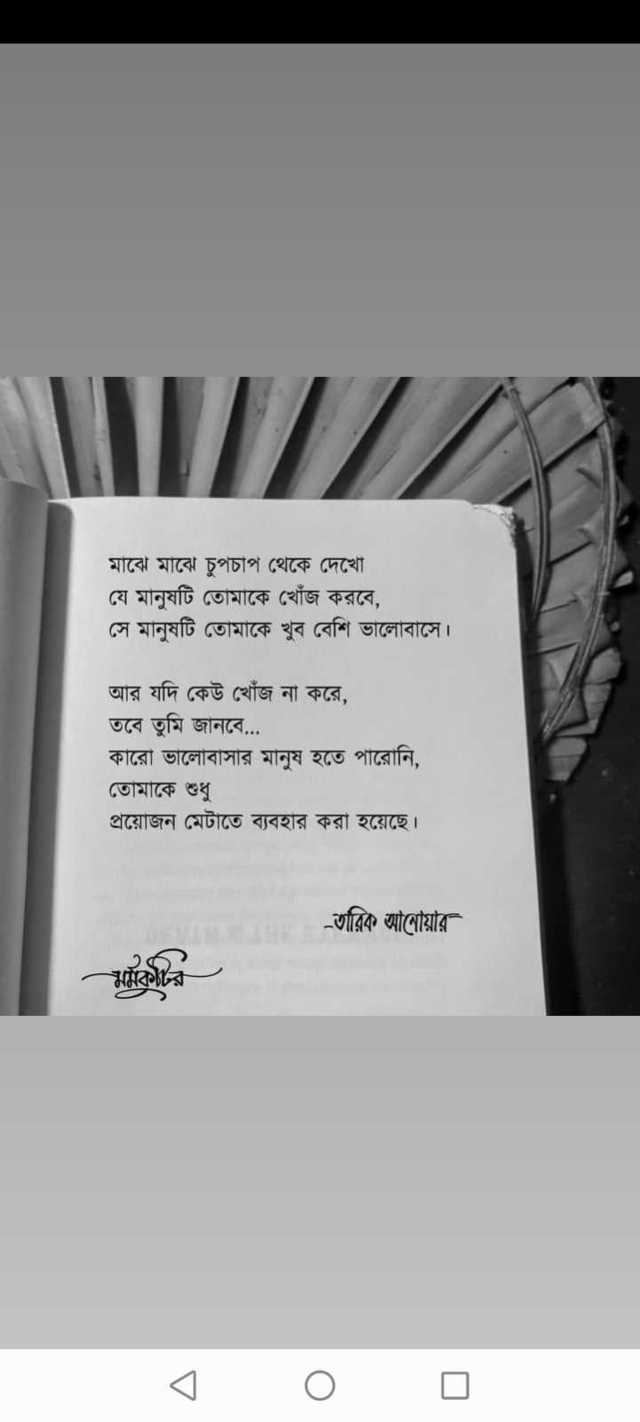 মাঝে মাঝে চুপচাপ থেকে দেখো
যে মানুষটি তোমাকে খোঁজ করবে,
সে মানুষটি তোমাকে খুব বেশি ভালোবাসে।
আর যদি কেউ খোঁজ না করে,
তবে তুমি জানবে...
কারো ভালোবাসার মানুষ হতে পারোনি,
তোমাকে শুধু
প্রয়োজন মেটাতে ব্যবহার করা হয়েছে।
-তারিক আনোয়ার
মর্মকুটির